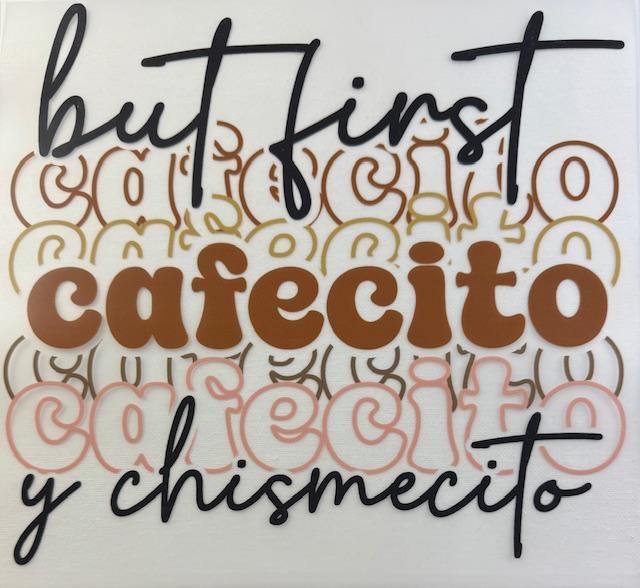 but first
cafecito
cafecito
cafecito
cafecito
cafecito
y chismecito